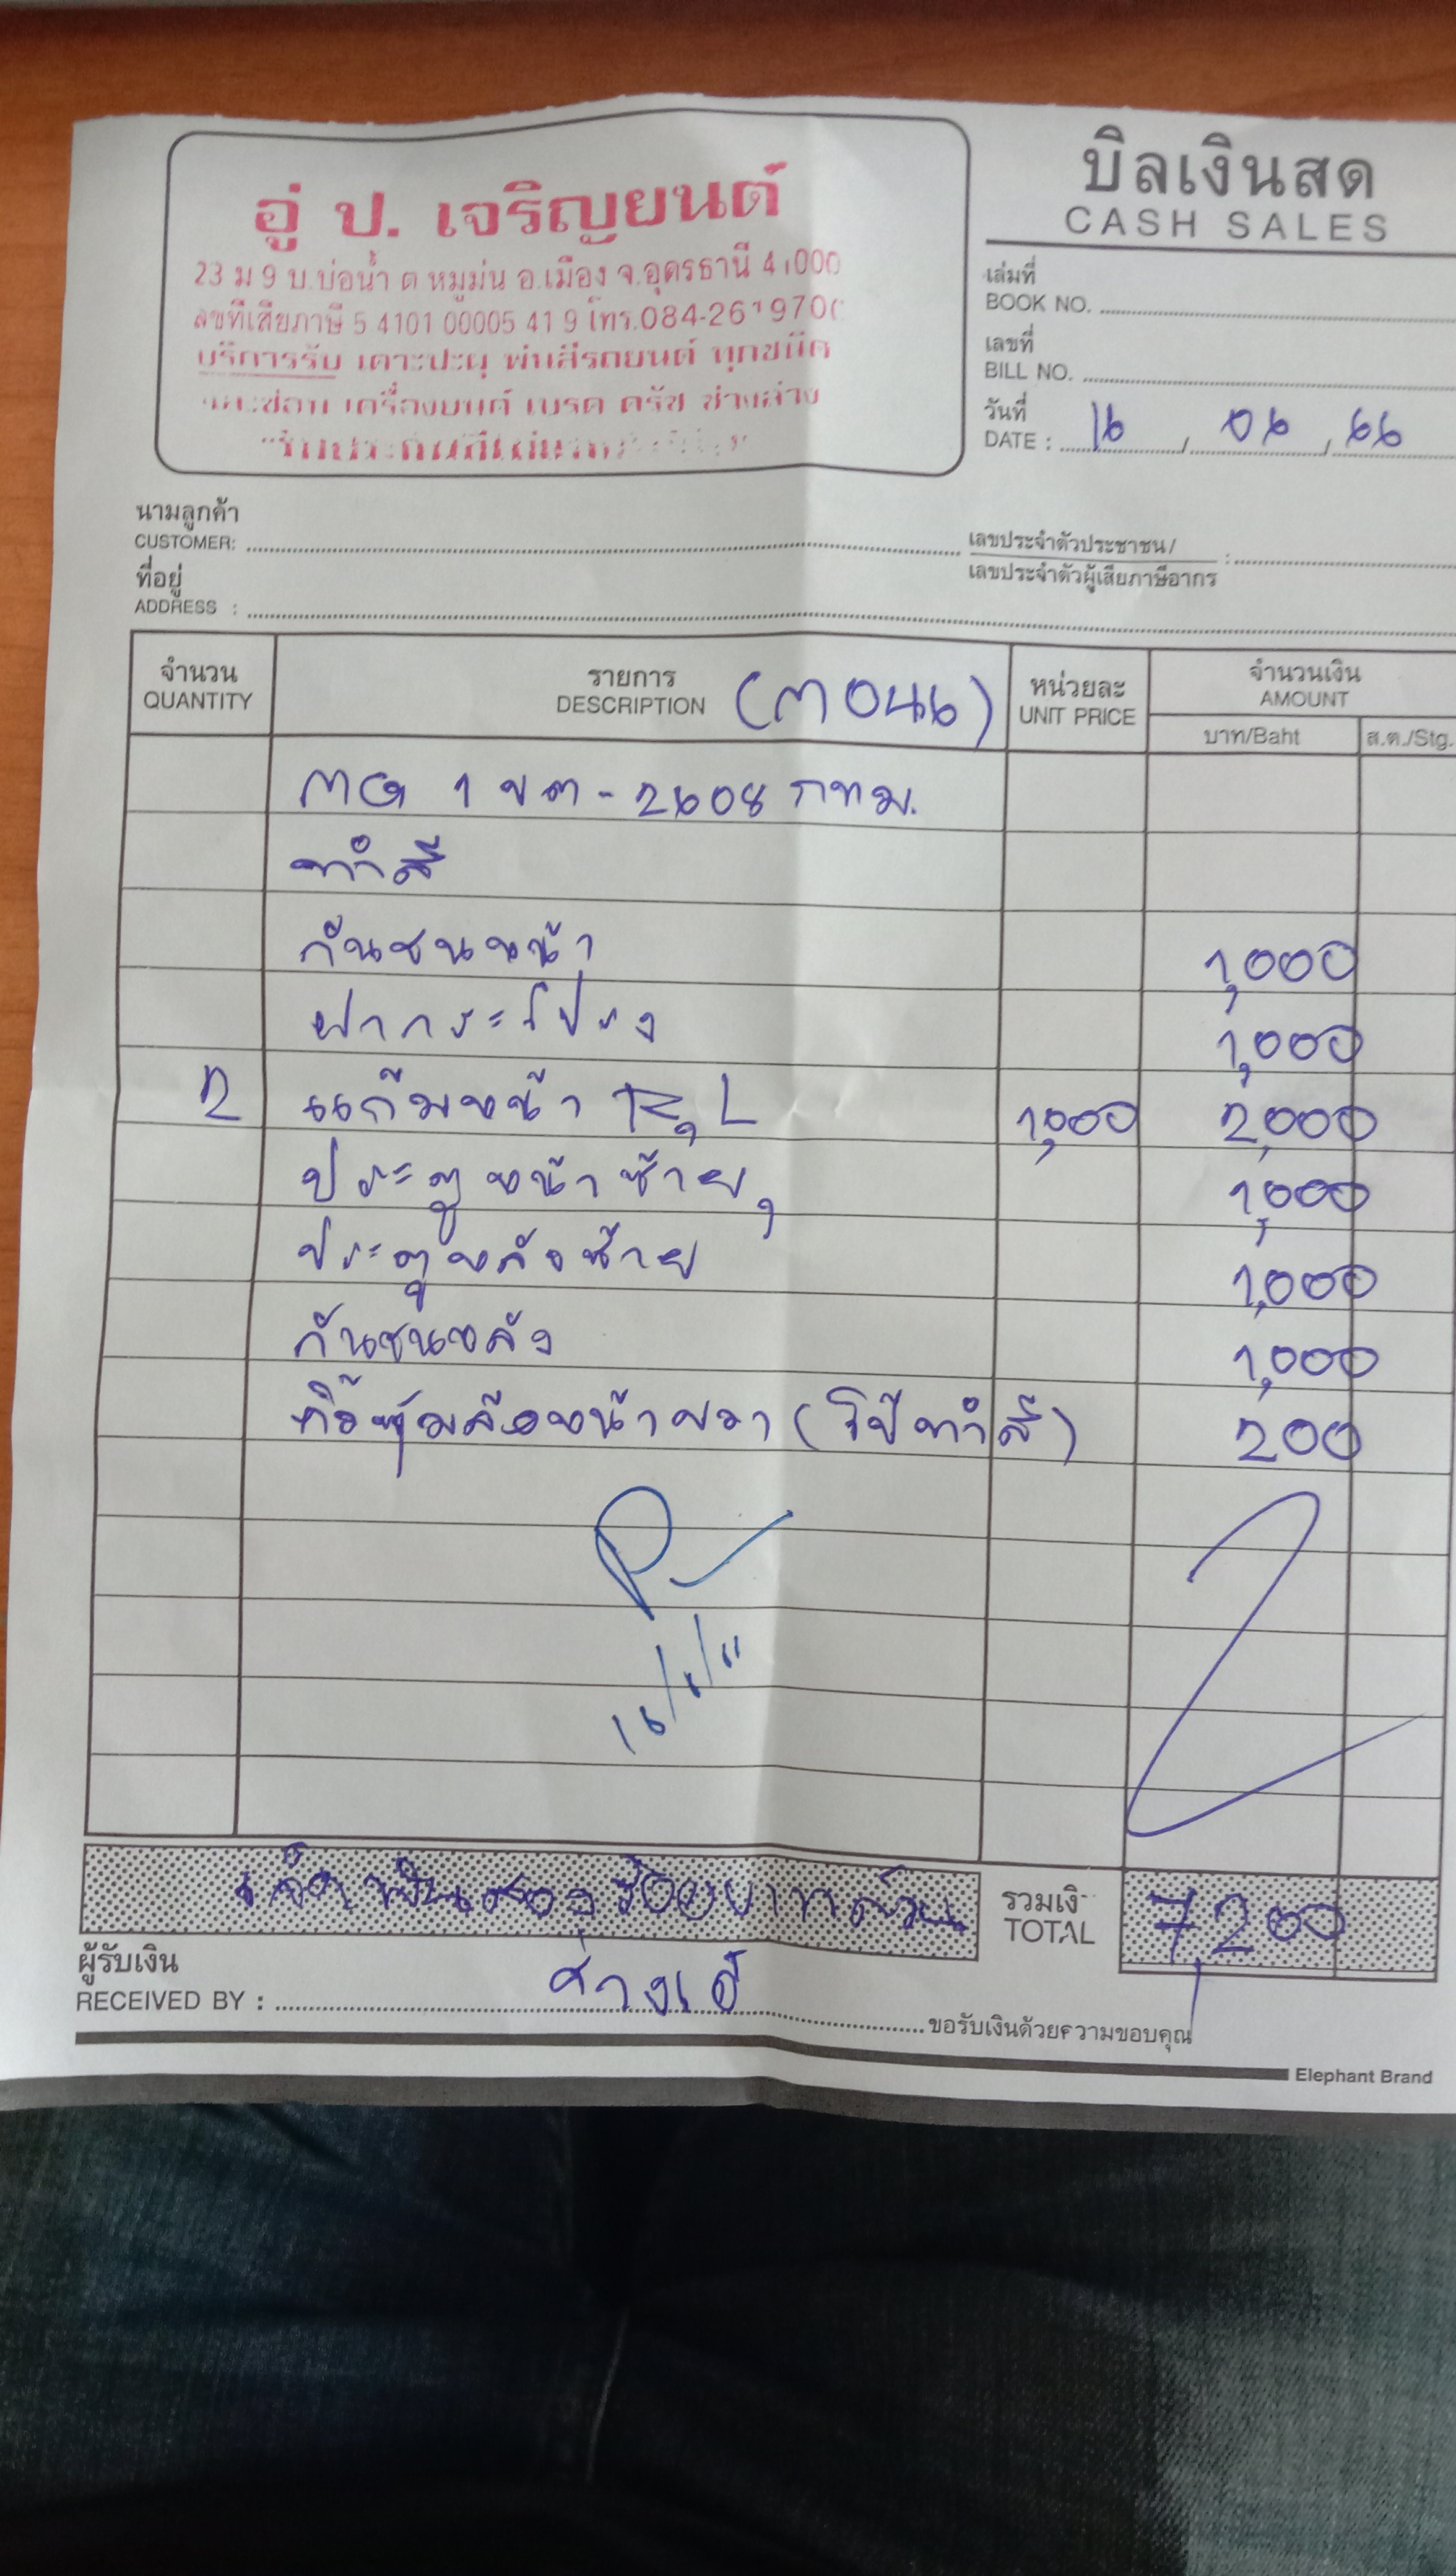 บิลเงินสด
CASH SALES
อู่ ป. เจริญยนต์
23 ม 9 บ.บ่อน้ำ ต หมูม่น อ.เมือง จ.อุดรธานี 41000
ลขที่เสียภาษี 5 4101 00005 41 9 โทร.084-261970
บริการรับ เคาะปะผุ พ่นสีรถยนต์ ทุกชนิด
และซ่อม เครื่องยนต์ เบรค ครัช ช่วงล่าง
เล่มที่
BOOK NO.
เลขที่
BILL NO.
วันที่
DATE : 16 / 06 / 66
นามลูกค้า
CUSTOMER:
เลขประจำตัวประชาชน/
เลขประจำตัวผู้เสียภาษีอากร
ที่อยู่
ADDRESS :
จำนวน รายการ หน่วยละ จำนวนเงิน
QUANTITY DESCRIPTION (M046) UNIT PRICE AMOUNT
บาท/Baht ส.ต./Stg.
MG 1 ขต - 2608 กทม.
ทำสี
กันชนหน้า 1,000
ฝากระโปรง 1,000
2 แก้มหน้า R, L 1,000 2,000
ประตูหน้าซ้าย, 1,000
ประตูหลังซ้าย 1,000
กันชนหลัง 1,000
คิ้วซุ้มล้อหน้าขวา (โป๊ทำสี) 200
16/6/66
เจ็ดพันสองร้อยบาทถ้วน
รวมเงิ
TOTAL 7,200
ผู้รับเงิน
RECEIVED BY : ช่างเอ๋ ขอรับเงินด้วยความขอบคุณ
Elephant Brand